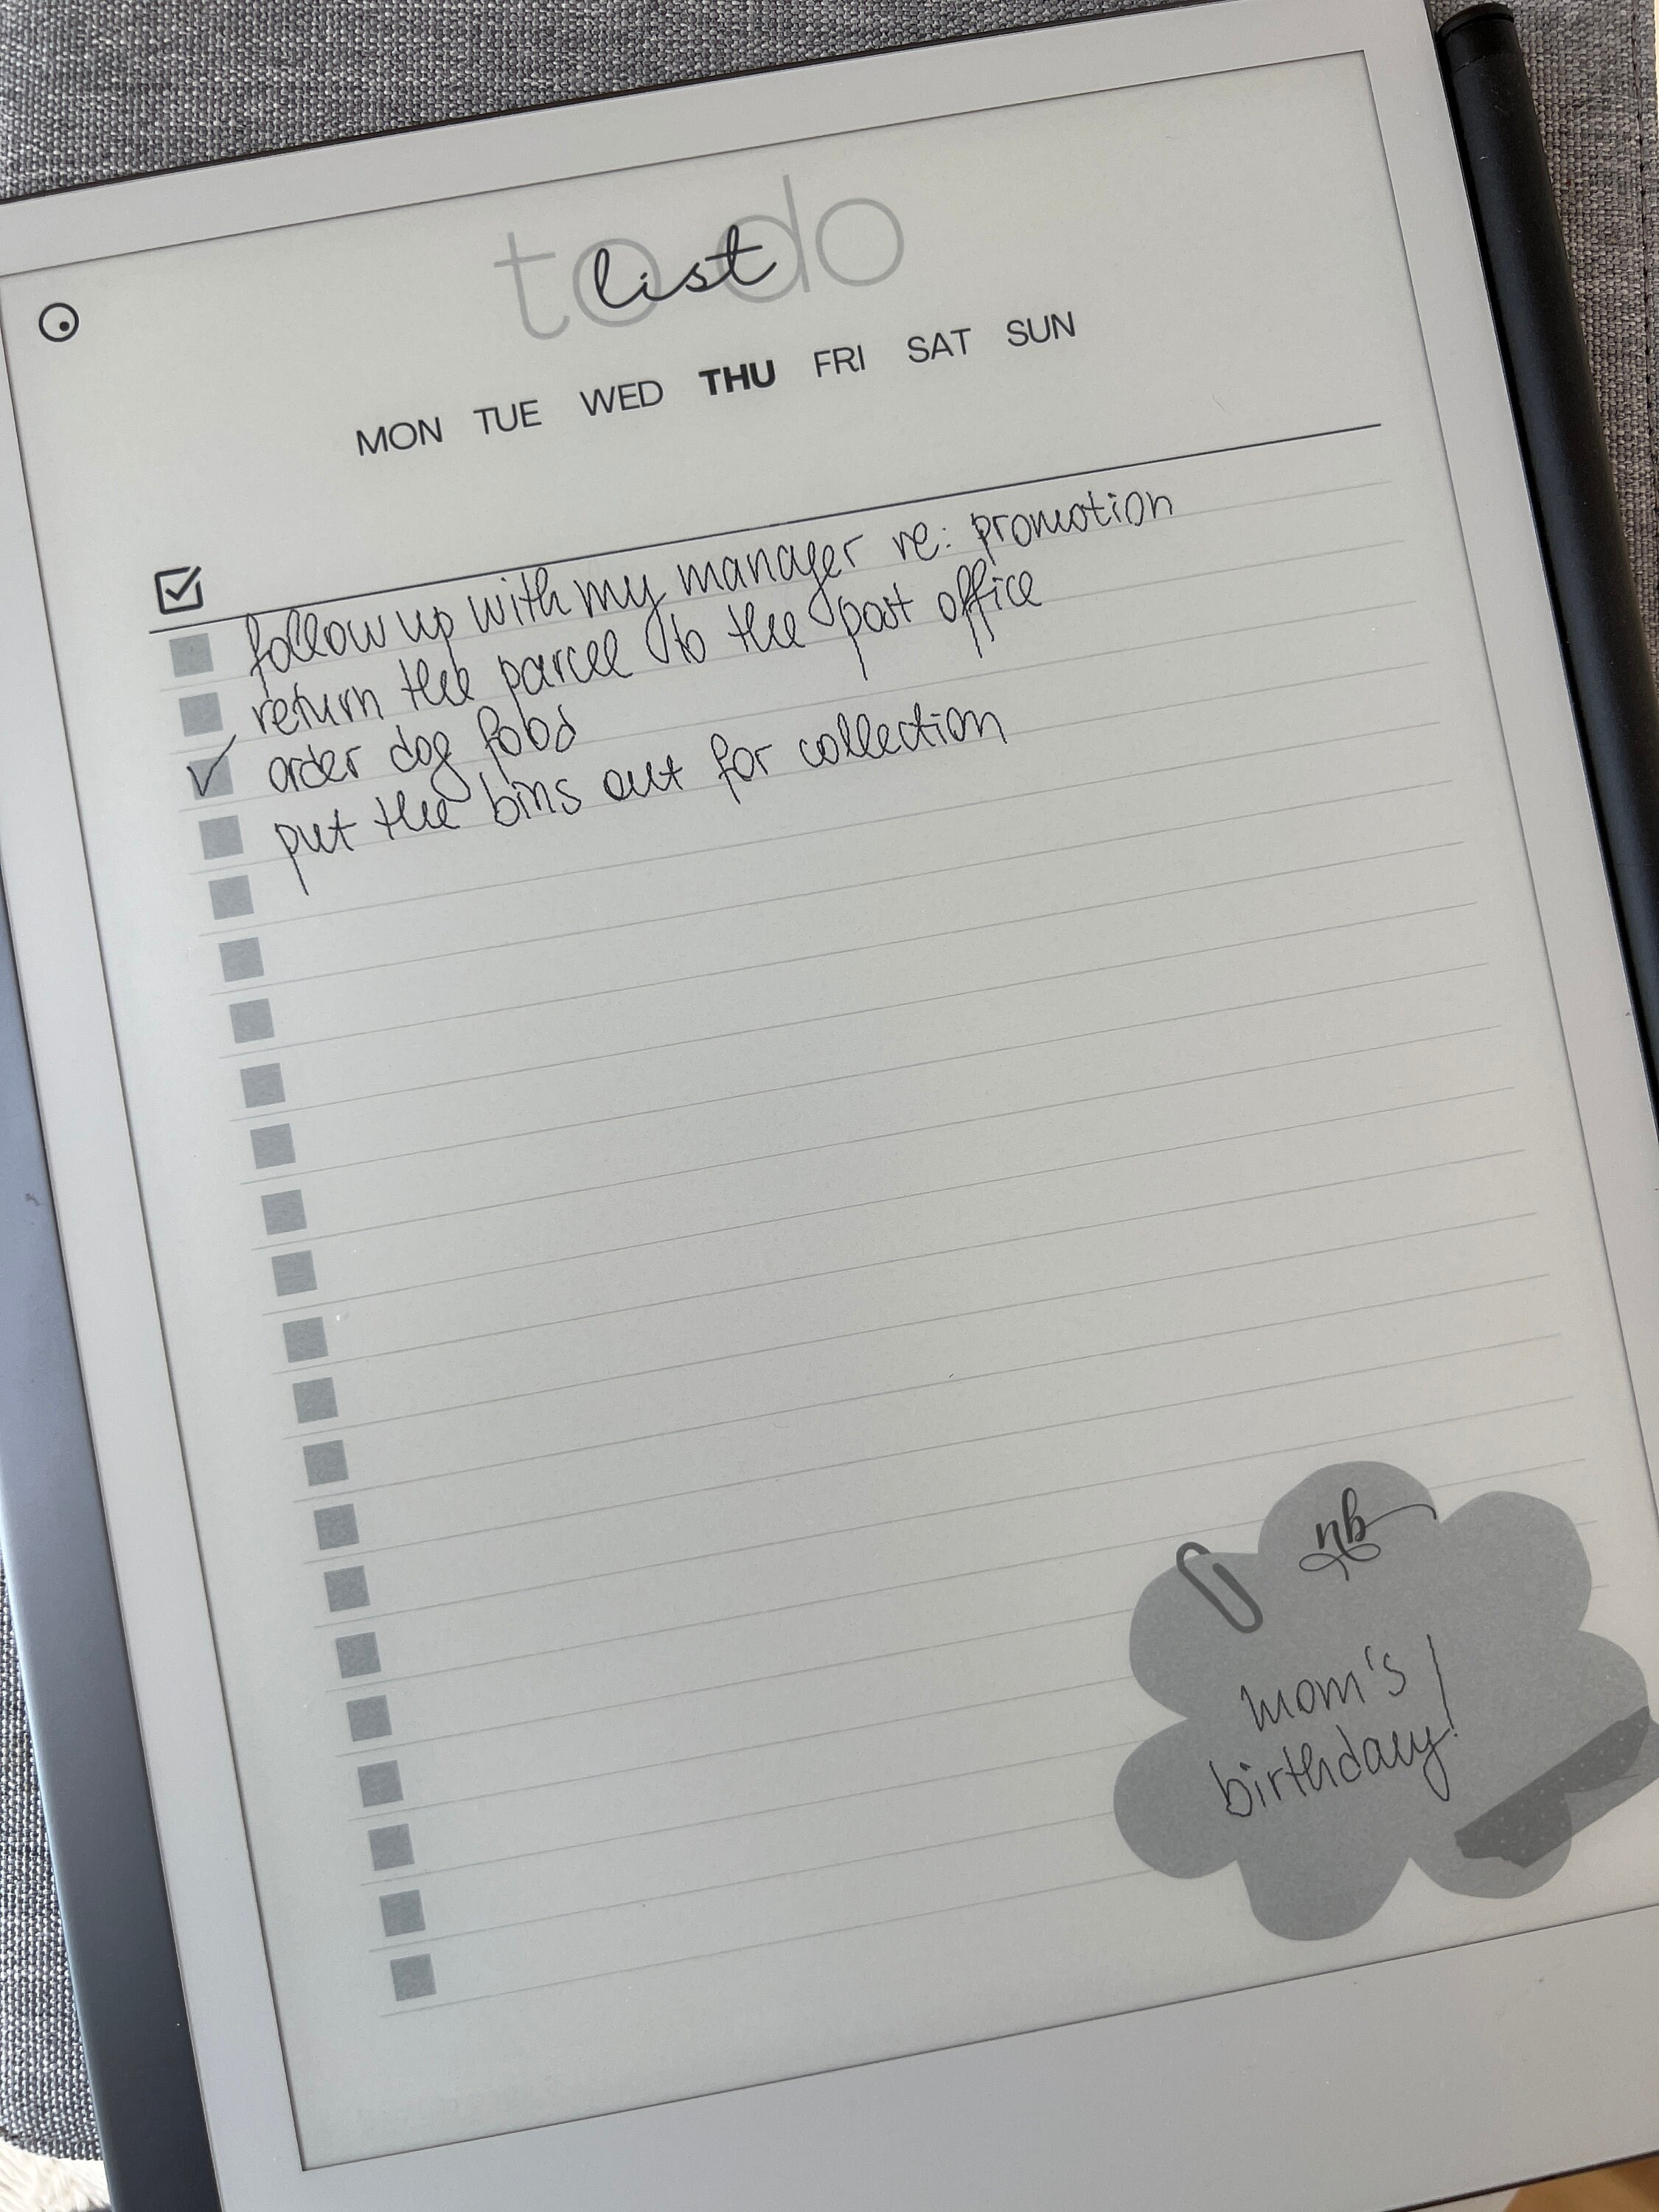 to do
list
MON TUE WED THU FRI SAT SUN
follow up with my manager re: promotion
return the parcel to the post office
order dog food
put the bins out for collection
nb
mom's
birthday!